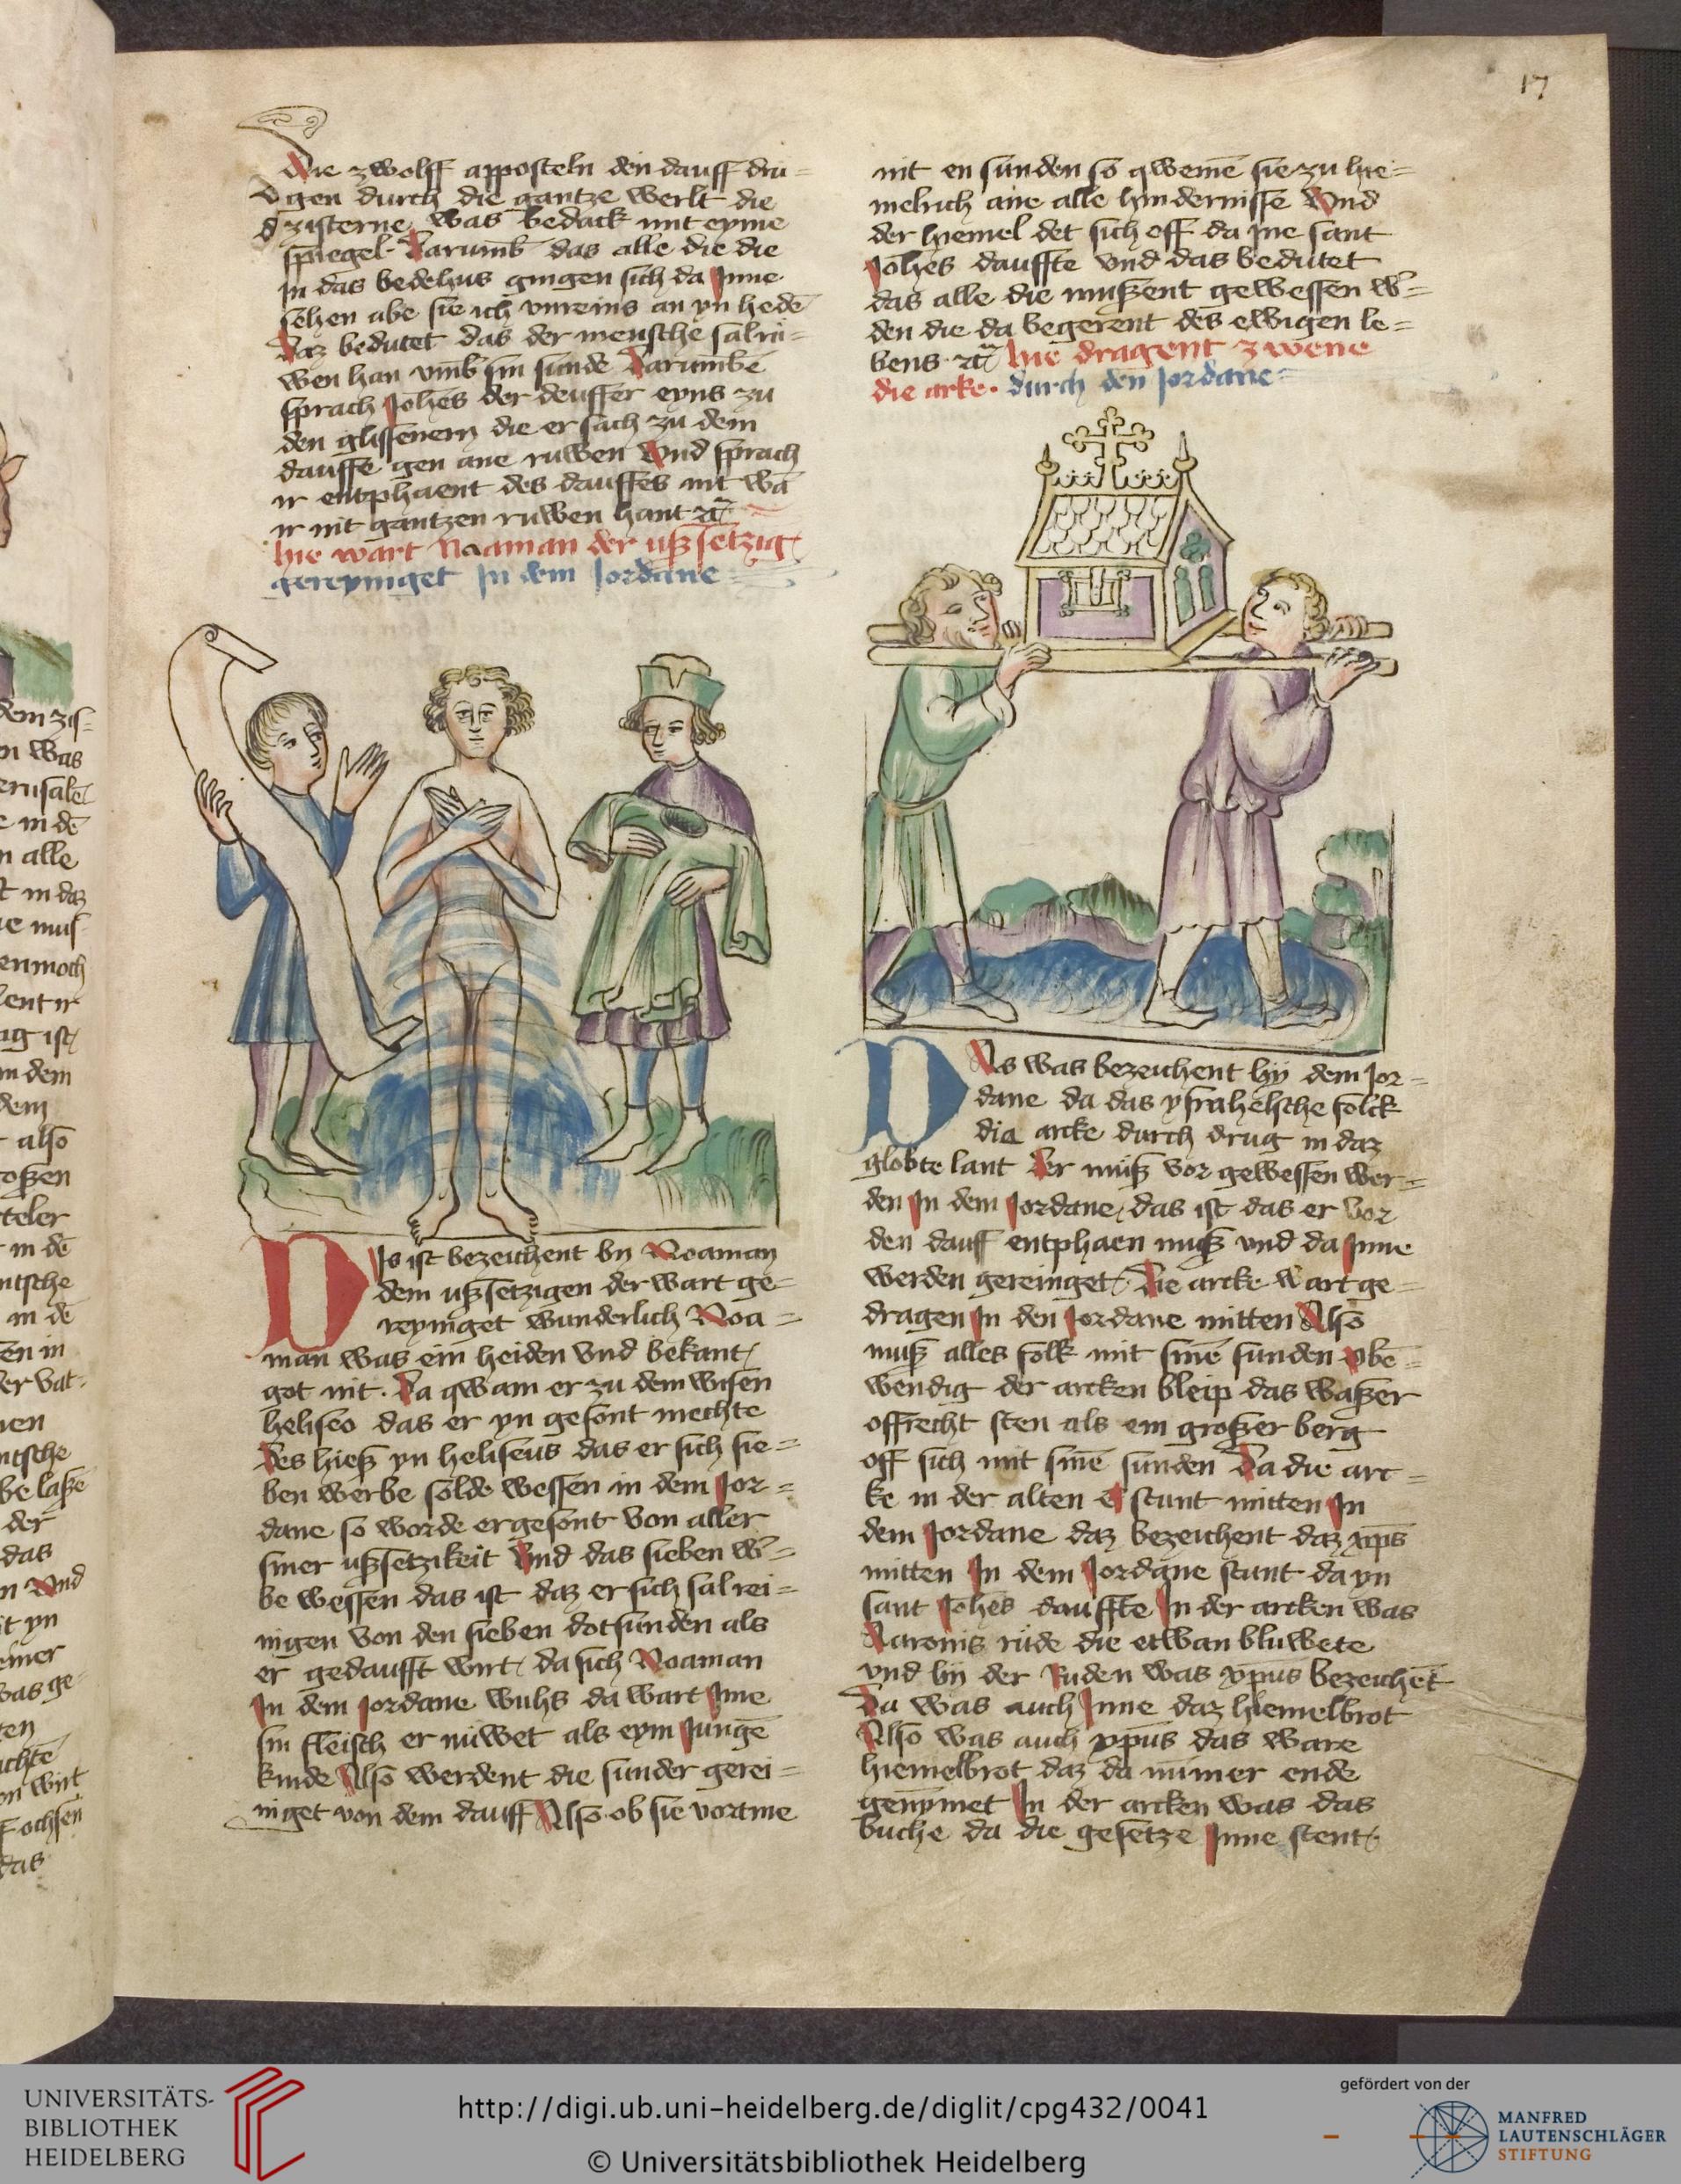 17
Die zwolff apposteln den dauff dru=
gen durch die gantze werlt die
zisterne was bedackt mit eyme
spiegel. Darumb das alle die die
in das bedehus gingen sich da Inne
sehen abe sie ich vnreins an yn hedē
Daz bedutet das der mensche sal ru=
wen han vmb sin sunde Darumbe
sprach Johēs der deuffer eyns zu
den glissenern die er sach zu dem
dauffe gen ane ruwen Vnd sprach
ir entphaent des dauffes nit wā
ir nit gantzen ruwen hant
hie wart Naaman der ußsetzig
gereyniget In dem Jordane
Dis ist bezeichent by Noaman
dem ußsetzigen der wart ge=
reyniget wunderlich Noa=
man was ein heiden vnd bekant
got nit. Da qwam er zu dem wisen
heliseo das er yn gesont mechte
Des hieß yn heliseus das er sich sie=
ben werbe solde wessen in dem Jor=
dane so worde er gesont von aller
siner ußsetzikeit Vnd das sieben w=
be wessen das ist daz er sich sal rei=
nigen von den sieben dotsunden als
er gedaufft wirt da sich Noaman
In dem Jordane wuhs da wart Ime
sin fleisch er nuwet als eym Jungē
kinde Also werdent die sunder gerei=
niget von dem dauff Also ob sie vortme
nit en sunden so qwemē sie zu hie=
melrich ane alle hindernisse Vnd
der hiemel det sich off da Ine sant
Johēs dauffte vnd das bedutet
das alle die mußent gewessen w=
den die da begerent des ewigen le=
bens hie dragent zwene
die arke. durch den Jordane=
Das was bezeichent by dem Jor=
dane da das ysrahelsche folck
dia arcke durch drug in daz
globte lant Der muß vor gewessen wer=
den In dem Jordane das ist das er vor
den dauff entphaen muß vnd da Inne
werden gereinget Die arcke wart ge=
dragen In den Jordane mitten Also
muß alles folk mit sinē sunden obē=
wendig der arcken bleip das waßer
offrecht sten als ein großer berg
off sich mit sinē sunden Da die arc=
ke in der alten e stunt mitten In
dem Jordane daz bezeichent daz xp̄s
mitten In dem Jordane stunt da yn
sant Johēs dauffte In der arcken was
Aaronis rude die etwan bluwete
vnd by der Ruden was xp̄us bezeichēt
Da was auch Inne daz hiemelbrot
Also was auch xp̄us das ware
hiemelbrot daz da nūmer ende
genymet In der arcken was das
buche da die gesetze Inne stent
UNIVERSITÄTS-
BIBLIOTHEK
HEIDELBERG
http://digi.ub.uni-heidelberg.de/diglit/cpg432/0041
© Universitätsbibliothek Heidelberg
gefördert von der
MANFRED
LAUTENSCHLÄGER
STIFTUNG